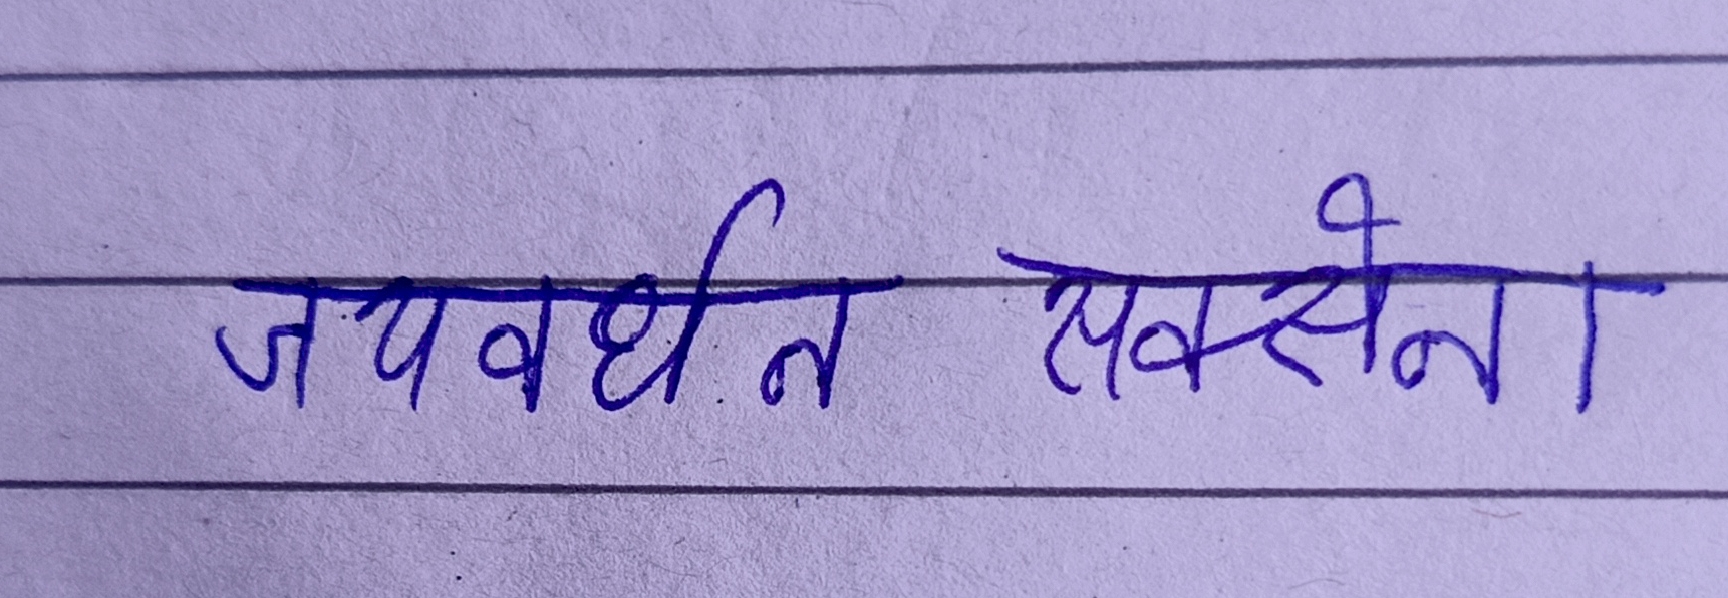 जयवर्धन सक्सेना